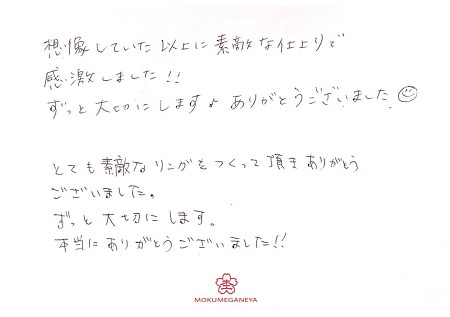 想像していた以上に素敵な仕上りで
感激しました!!
ずっと大切にします♪ ありがとうございました☺
とても素敵なリングをつくって頂きありがとう
ございました。
ずっと大切にします。
本当にありがとうございました!!
MOKUMEGANEYA